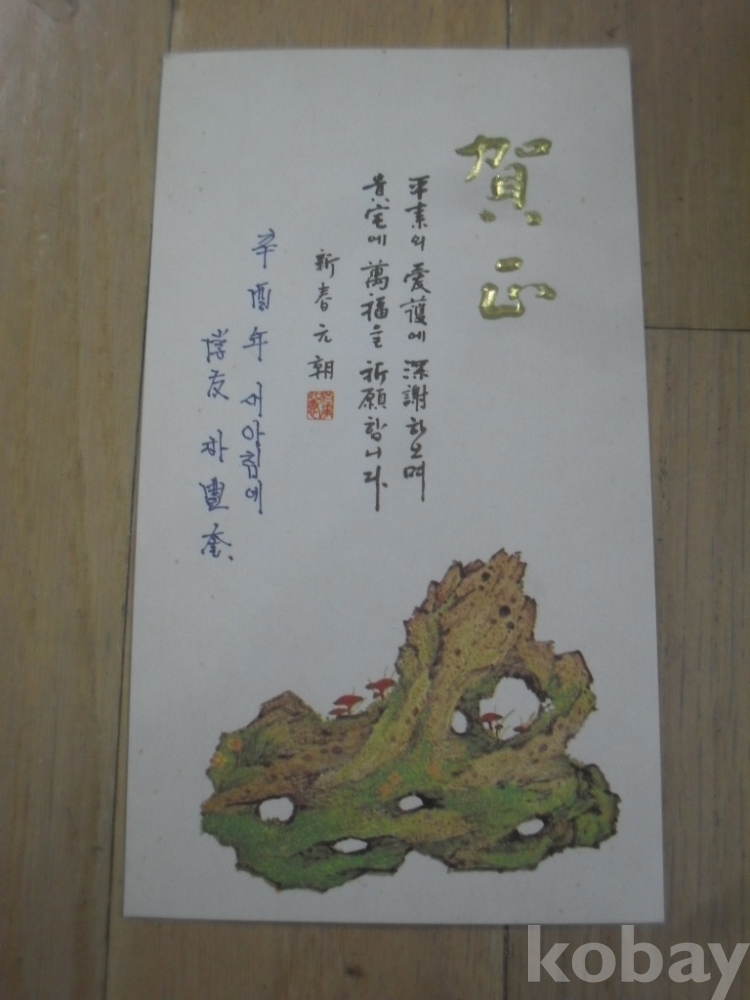 賀正
平素의 愛護에 深謝하오며
貴宅에 萬福을 祈願합니다.
新春元朝
辛酉年 새아침에
朴豊
kobay